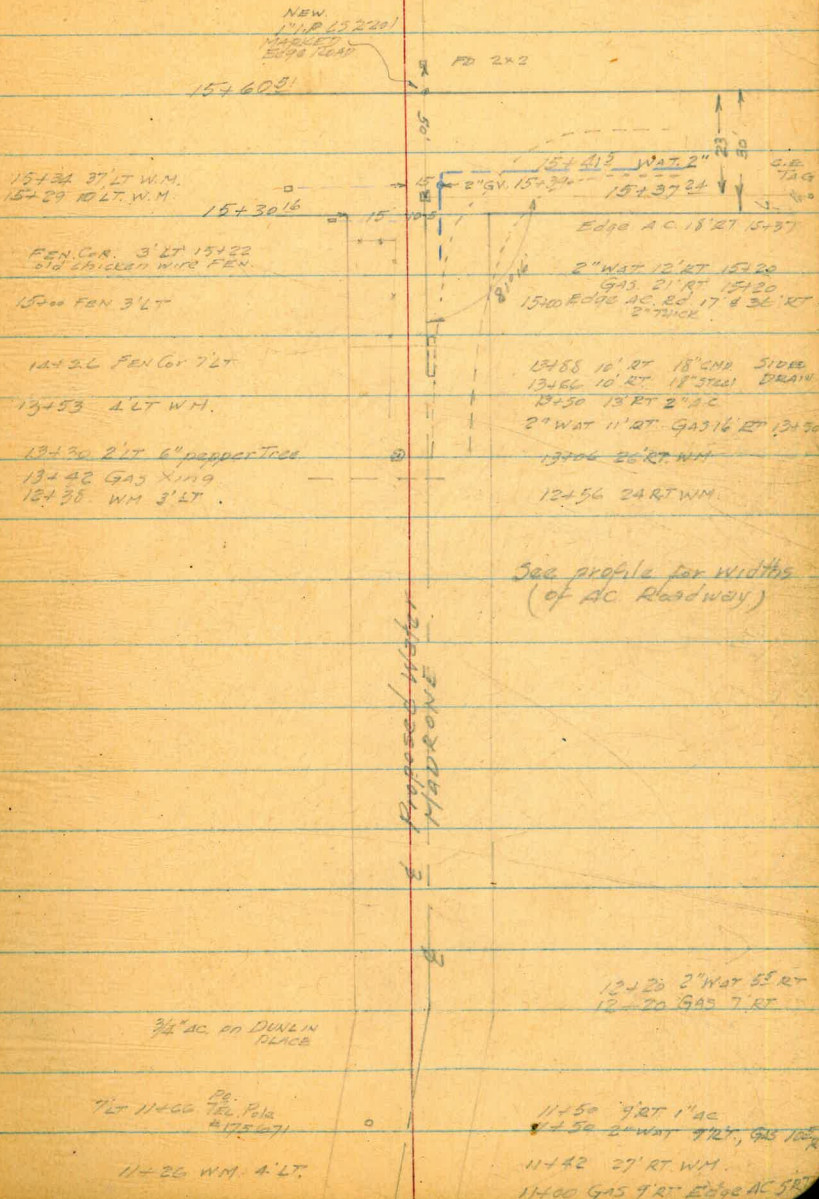 NEW.
1" I.P. LS 2201
MARKED
Edge ROAD
FD 2x2
15+60 51
50'
23'
30'
15+41 5 WAT. 2"
C.E.
TAG
15+34 37' LT W.M.
15+29 10' LT. W.M
15
2" GV. 15+39
15+37 24
15+30 16
15
10
Edge A.C. 18' RT 15+37
FEN. COR. 3' LT 15+22
old chicken wire FEN.
2" WAT 12' RT 15+20
GAS. 21' RT 15+20
15+00 FEN 3' LT
15+00 Edge AC. Rd. 17' & 36' RT
2" THICK.
14+26 FEN Cor 7' LT
13+88 10' RT 18" CMP. SIDE
13+66 10' RT 18" STEEL DRAIN
13+53 4' LT W M.
13+50 13' RT 2" A.C.
2" WAT 11' RT GAS 16' RT 13+50
13+30 2' LT 6" pepper Tree
13+06 26' RT. WM
13+42 GAS Xing
12+38 WM 3' LT.
12+56 24 RT WM.
See profile for widths
(of AC Roadway)
Proposed Wat
MADRONE
12+20 2" WAT 5 5 RT
12+20 GAS 7' RT
3/4" AC. on DUNLIN
PLACE
7' LT 11+66 TEL. Pole
#175671
11+50 9' RT 1" AC
11+50 2" WAT 9' RT., GAS
11+26 WM. 4' LT.
11+42 27' RT. WM.
11+00 GAS 9' RT Edge AC 5 RT